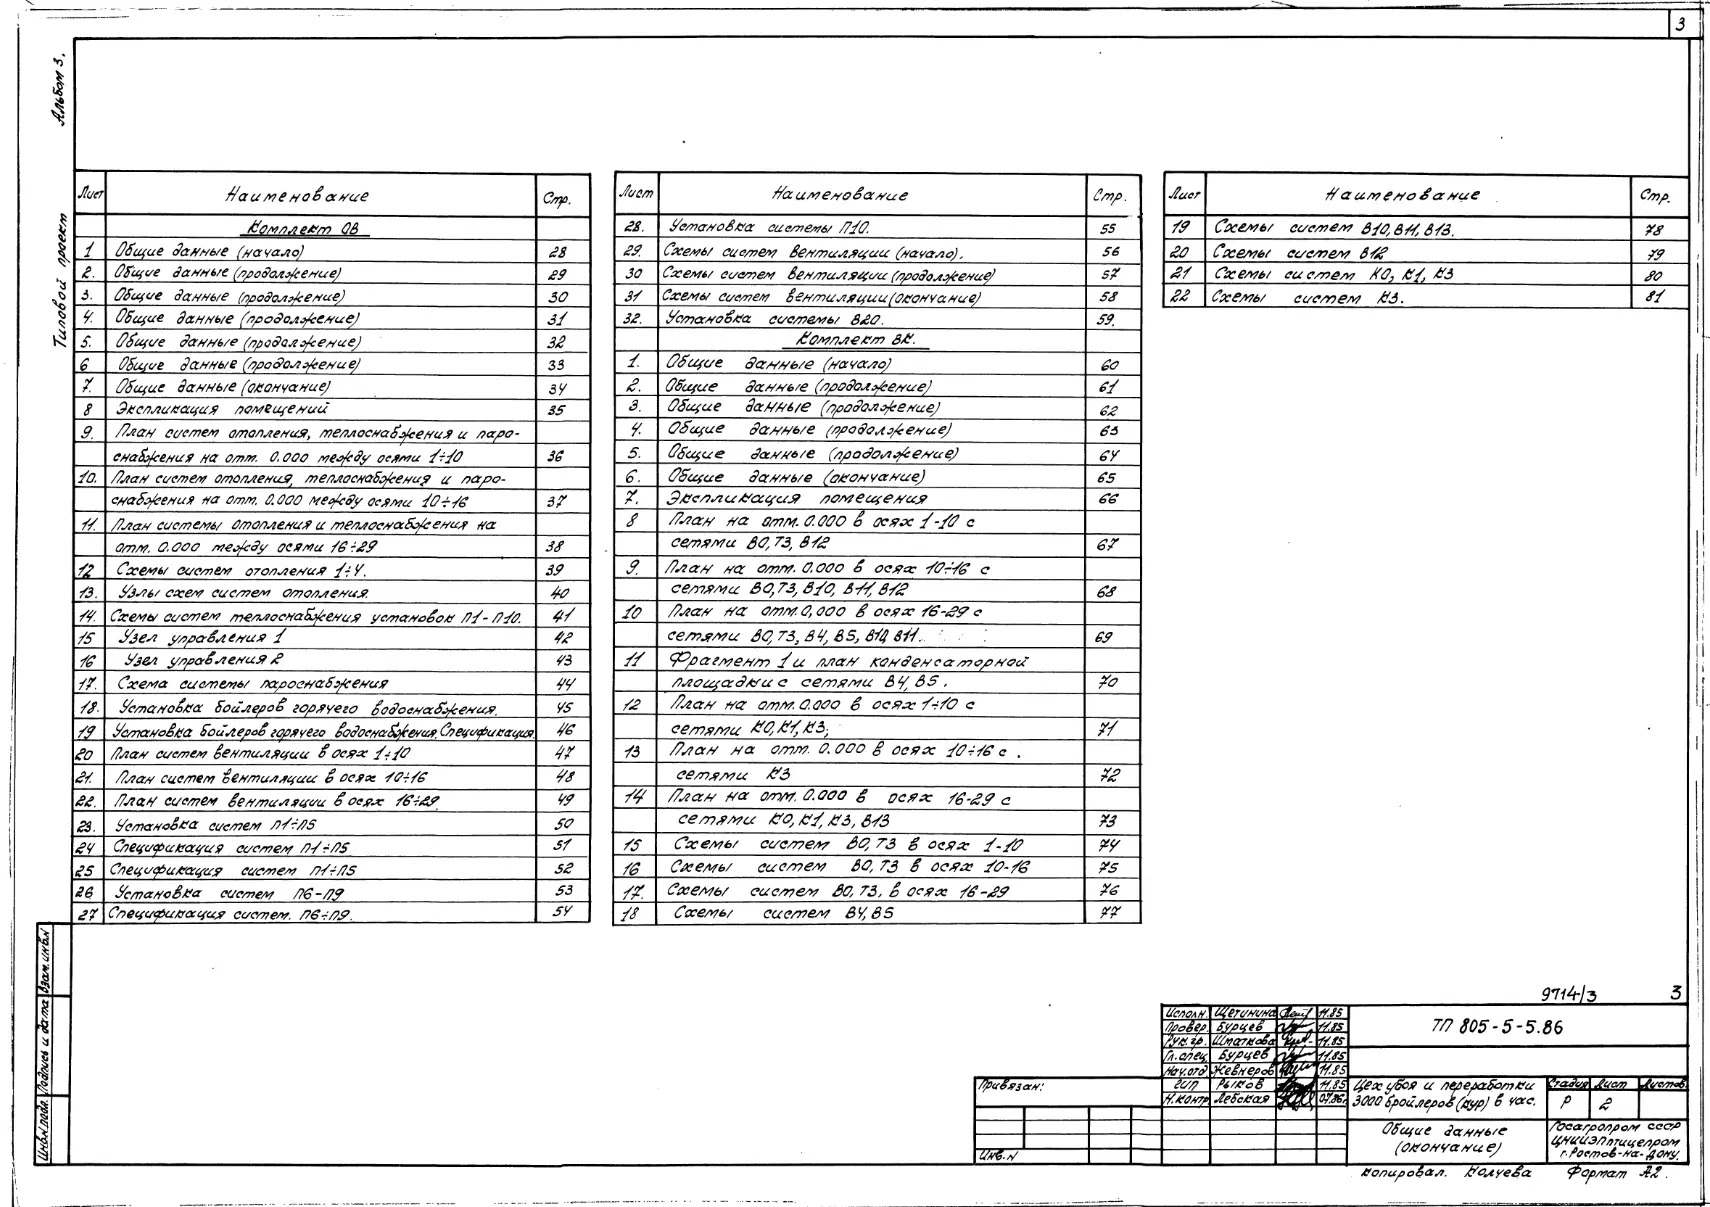 3
Альбом 3.
Типовой проект
Лист Наименование Стр.
Комплект ОВ
1 Общие данные (начало) 28
2. Общие данные (продолжение) 29
3. Общие данные (продолжение) 30
4. Общие данные (продолжение) 31
5. Общие данные (продолжение) 32
6 Общие данные (продолжение) 33
7. Общие данные (окончание) 34
8 Экспликация помещений 35
9. План систем отопления, теплоснабжения и паро-
снабжения на отм. 0.000 между осями 1÷10 36
10. План систем отопления, теплоснабжения и паро-
снабжения на отм. 0.000 между осями 10÷16 37
11. План системы отопления и теплоснабжения на
отм. 0.000 между осями 16÷29 38
12 Схемы систем отопления 1÷4. 39
13. Узлы схем систем отопления. 40
14. Схемы систем теплоснабжения установок П1-П10. 41
15 Узел управления 1 42
16 Узел управления 2 43
17. Схема системы пароснабжения 44
18. Установка бойлеров горячего водоснабжения. 45
19 Установка бойлеров горячего водоснабжения. Спецификация. 46
20 План систем вентиляции в осях 1÷10 47
21. План систем вентиляции в осях 10÷16 48
22. План систем вентиляции в осях 16÷29 49
23. Установка систем П1÷П5 50
24 Спецификация систем П1÷П5 51
25 Спецификация систем П1÷П5 52
26 Установка систем П6-П9 53
27 Спецификация систем. П6÷П9. 54
Лист Наименование Стр.
28. Установка системы П10. 55
29. Схемы систем вентиляции (начало). 56
30 Схемы систем вентиляции (продолжение) 57
31 Схемы систем вентиляции (окончание) 58
32. Установка системы В20. 59.
Комплект ВК.
1. Общие данные (начало) 60
2. Общие данные (продолжение) 61
3. Общие данные (продолжение) 62
4. Общие данные (продолжение) 63
5. Общие данные (продолжение) 64
6. Общие данные (окончание) 65
7. Экспликация помещения 66
8 План на отм. 0.000 в осях 1-10 с
сетями В0, Т3, В12 67
9. План на отм. 0.000 в осях 10÷16 с
сетями В0, Т3, В10, В11, В12 68
10 План на отм. 0,000 в осях 16-29 с
сетями В0, Т3, В4, В5, В10, В11. 69
11 Фрагмент 1 и план конденсаторной
площадки с сетями В4, В5. 70
12 План на отм. 0.000 в осях 1÷10 с
сетями К0, К1, К3; 71
13 План на отм. 0.000 в осях 10÷16 с .
сетями К3 72
14 План на отм. 0.000 в осях 16-29 с
сетями К0, К1, К3, В13 73
15 Схемы систем В0, Т3 в осях 1-10 74
16 Схемы систем В0, Т3 в осях 10-16 75
17. Схемы систем В0, Т3, в осях 16-29 76
18 Схемы систем В4, В5 77
Лист Наименование Стр.
19 Схемы систем В10, В11, В13. 78
20 Схемы систем В12 79
21 Схемы систем К0, К1, К3 80
22 Схемы систем К3. 81
Взам. инв.N
Подпись и дата
Инв.N подл.
9714/3 3
Исполн. Щетинина 11.85
Провер. Бурцев 11.85
Рук. гр. Шпаткова 11.85
Гл. спец. Бурцев 11.85
Нач. отд Жевнеров 11.85
ГИП Рыков 11.85
Н. контр. Лебская 07.86г
ТП 805-5-5.86
Привязан:
Инв. N
Цех убоя и переработки
3000 бройлеров (кур) в час.
Стадия Лист Листов
Р 2
Общие данные
(окончание)
Госагропром СССР
ЦНИИЭПптицепром
г. Ростов-на-Дону.
Копировал. Колчева Формат А2.